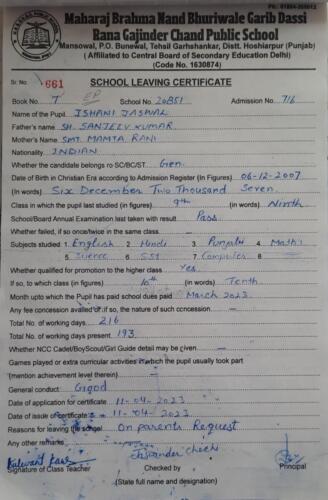 Ph.: 01884-265012
Maharaj Brahma Nand Bhuriwale Garib Dassi
Rana Gajinder Chand Public School
Mansowal, P.O. Bunewal, Tehsil Garhshankar, Distt. Hoshiarpur (Punjab)
( Affiliated to Central Board of Secondary Education Delhi)
(Code No. 1630874)
Sr. No. 661 SCHOOL LEAVING CERTIFICATE
Book No. I EP School No. 20851 Admission No. 716
Name of the Pupil ISHANI JASWAL
Father's name SH. SANJEEV KUMAR
Mother's Name SMT. MAMTA RANI
Nationality INDIAN
Whether the candidate belongs ro SC/BC/ST Gen.
Date of Birth in Christian Era according to Admission Register (In Figures) 06-12-2007
(In words) Six December Two Thousand Seven.
Class in which the pupil last studied (in figures) 9th (in words) Ninth
School/Board Annual Examination last taken with result Pass
Whether failed, if so once/twice in the same class
Subjects studied 1. English 2. Hindi 3. Punjabi 4. Math
5. Science 6. SST 7. Computer 8.
Whether qualified for promotion to the higher class Yes
If so, to which class (in figures) 10th (in words) Tenth
Month upto which the Pupil has paid school dues paid March 2023.
Any fee concession availed of: if so, the nature of such concession
Total No. of working days 216
Total No. of working days present 193
Whether NCC Cadet/BoyScout/Girl Guide detail may be given
Games played or extra curricular activities in which the pupil usually took part
(mention achievement level therein)
General conduct Good
Date of application for certificate 11-04-2023
Date of issue of certificate 11-04-2023
Reasons for leaving the school On parents Request
Any other remarks
Kulwant Kaur
Signature of Class Teacher Checked by Principal
(State full name and designation)